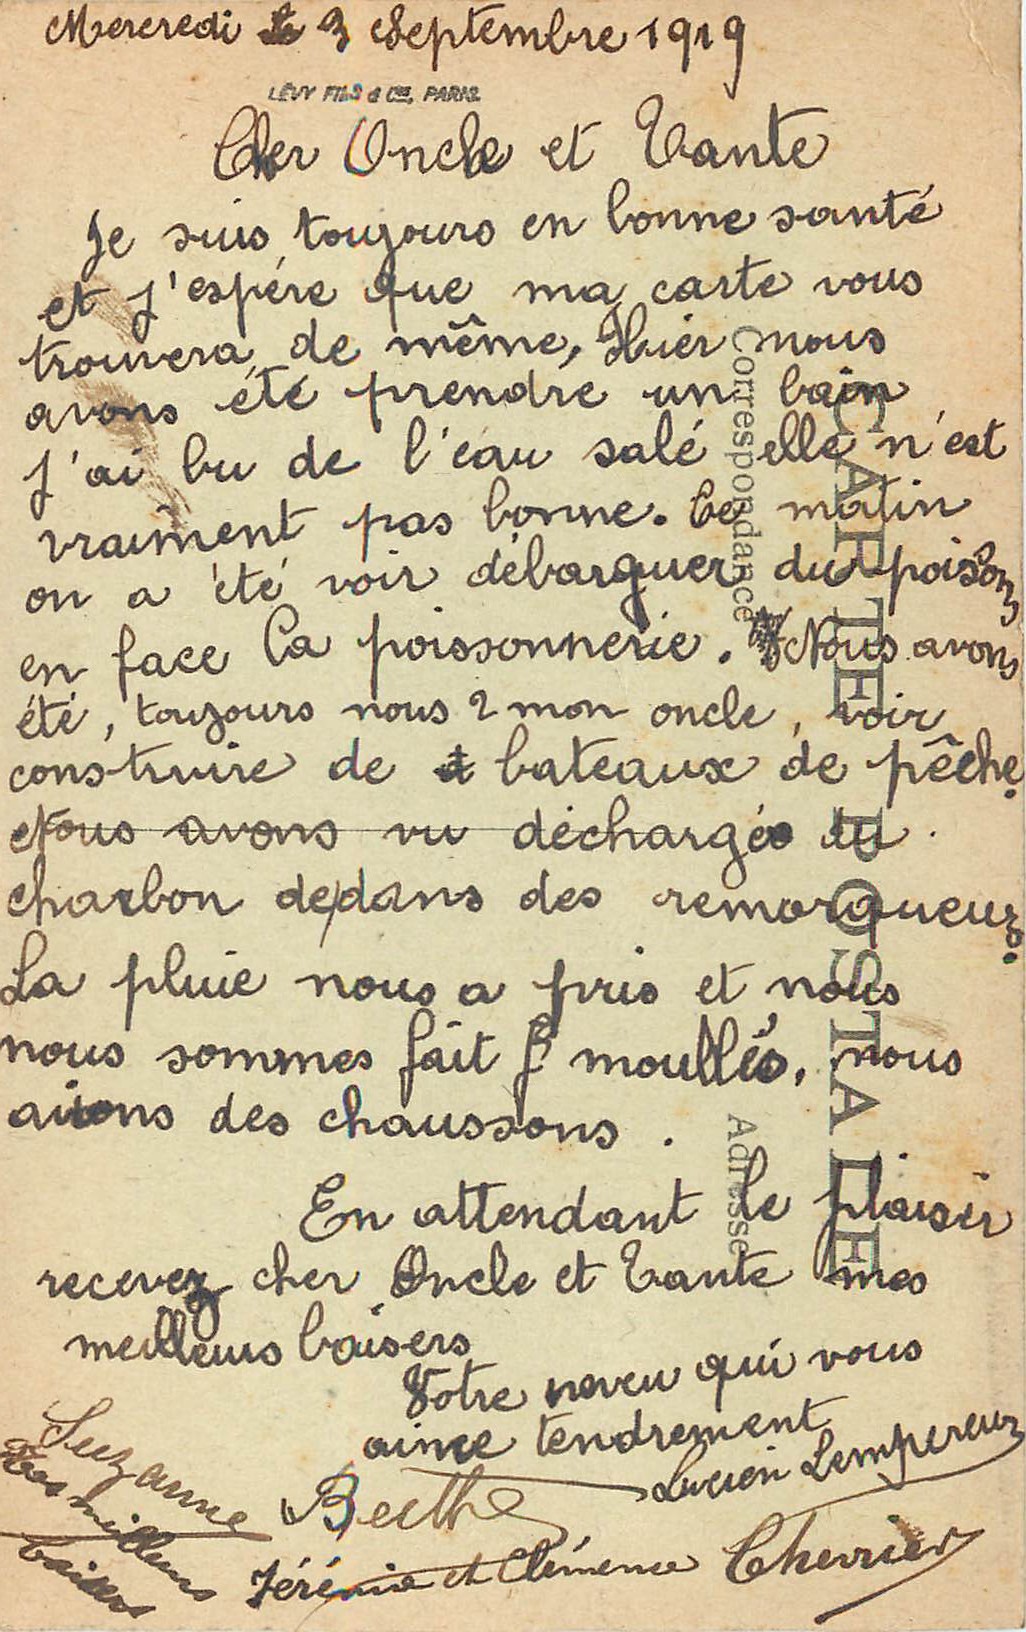 Mercredi le 3 Septembre 1919
LÉVY FILS & Cie, PARIS
Cher Oncle et Tante
Je suis toujours en bonne santé
et j'espére que ma carte vous
trouvera de même, Hier nous
avons été prendre un bain
j'ai bu de l'eau salé elle n'est
vraiment pas bonne. Ce matin
on a été voir débarquer du poisson
en face la poissonnerie. Nous avons
été, toujours nous 2 mon oncle, voir
construire de bateaux de pêche.
Nous avons vu déchargés du
charbon de/dans des remorqueurs.
La pluie nous a pris et nous
nous sommes fait moullés, nous
avions des chaussons.
En attendant le plaisir
recevez cher Oncle et Tante mes
meilleurs baisers
Votre neveu qui vous
aime tendrement
Lucien Lempereur
Suzanne
Mes milleurs
baisers
Berthe
Jérémie et Clémence Cherrier
Correspondance
Adresse
CARTE POSTALE